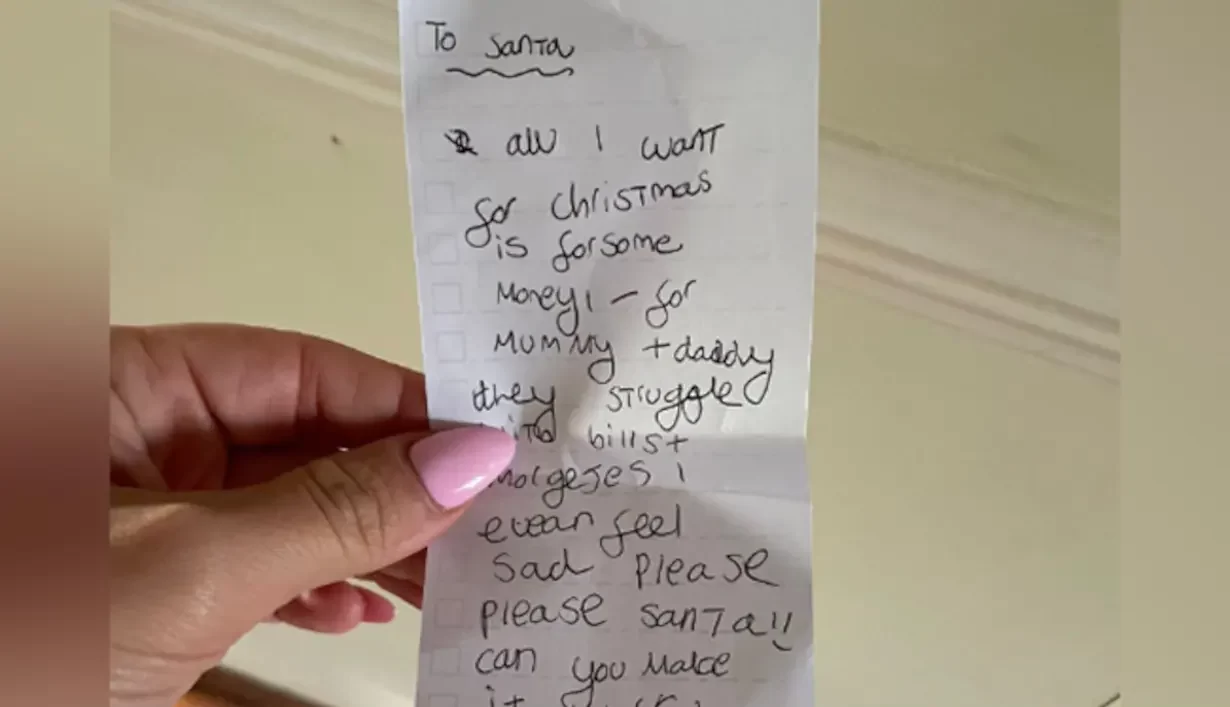 To Santa
all I want
for christmas
is forsome
Money, - for
MUMMY + daddy
they struggle
bills +
morgeJes I
evean feel
sad please
please santa!!
can you Make
it